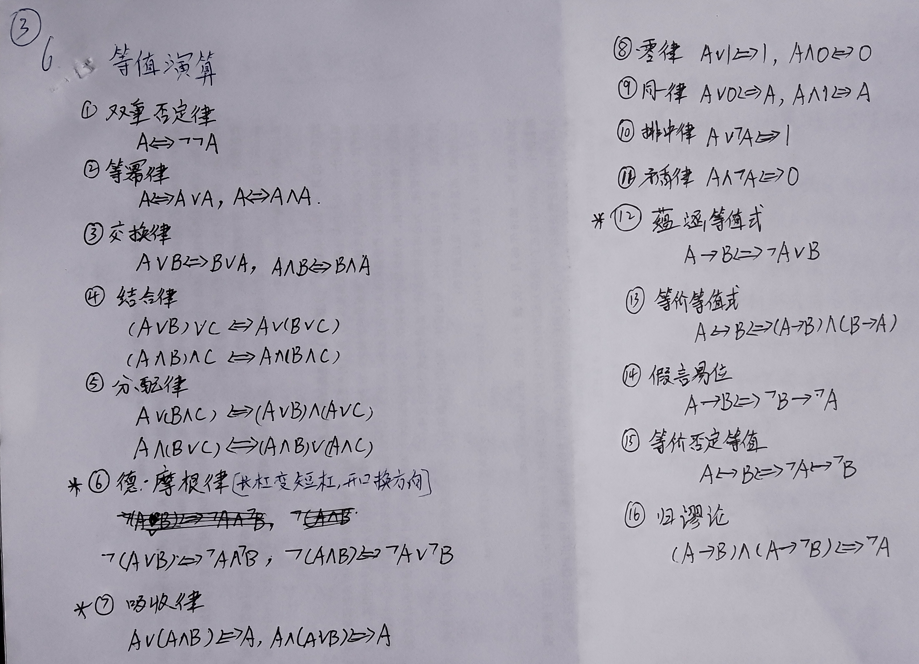 ③
6. 等值演算
① 双重否定律
A⇔¬¬A
② 等幂律
A⇔A∨A, A⇔A∧A.
③ 交换律
A∨B⇔B∨A, A∧B⇔B∧A
④ 结合律
(A∨B)∨C ⇔A∨(B∨C)
(A∧B)∧C ⇔A∧(B∧C)
⑤ 分配律
A∨(B∧C) ⇔(A∨B)∧(A∨C)
A∧(B∨C) ⇔(A∧B)∨(A∧C)
* ⑥ 德·摩根律[长杠变短杠,开口换方向]
¬(A∨B)⇔¬A∧¬B, ¬(A∧B
¬(A∨B)⇔¬A∧¬B ; ¬(A∧B)⇔¬A∨¬B
* ⑦ 吸收律
A∨(A∧B)⇔A, A∧(A∨B)⇔A
⑧ 零律 A∨1⇔1, A∧0⇔0
⑨ 同一律 A∨0⇔A, A∧1⇔A
⑩ 排中律 A∨¬A⇔1
⑪ 矛盾律 A∧¬A⇔0
* ⑫ 蕴涵等值式
A→B⇔¬A∨B
⑬ 等价等值式
A↔B⇔(A→B)∧(B→A)
⑭ 假言易位
A→B⇔¬B→¬A
⑮ 等价否定等值
A↔B⇔¬A↔¬B
⑯ 归谬论
(A→B)∧(A→¬B)⇔¬A